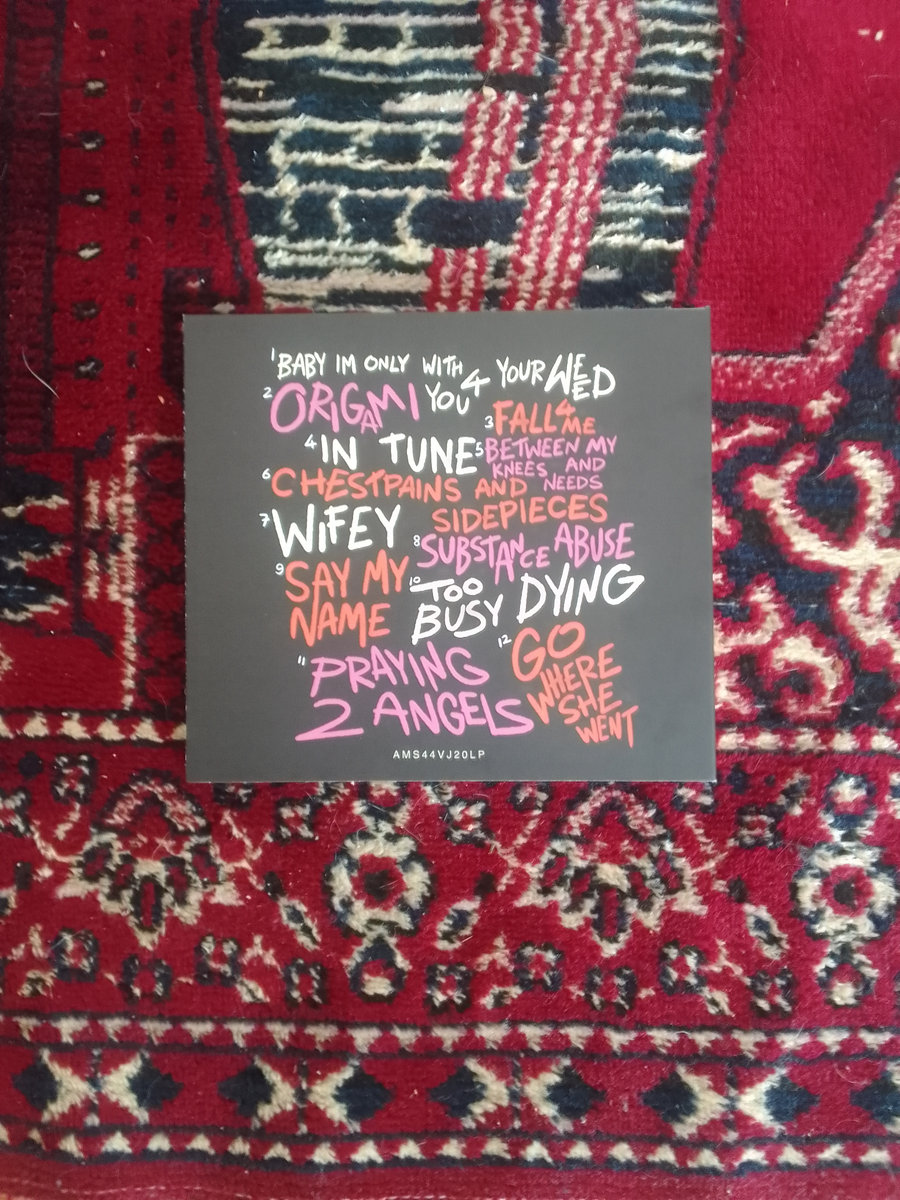 1 BABY IM ONLY WITH YOU 4 YOUR WEED
2 ORIGAMI
3 FALL 4 ME
4 IN TUNE
5 BETWEEN MY
KNEES AND
NEEDS
6 CHESTPAINS AND
SIDEPIECES
7 WIFEY
8 SUBSTANCE ABUSE
9 SAY MY
NAME
10 TOO
BUSY DYING
11 PRAYING
2 ANGELS
12 GO
WHERE
SHE
WENT
AMS44VJ20LP